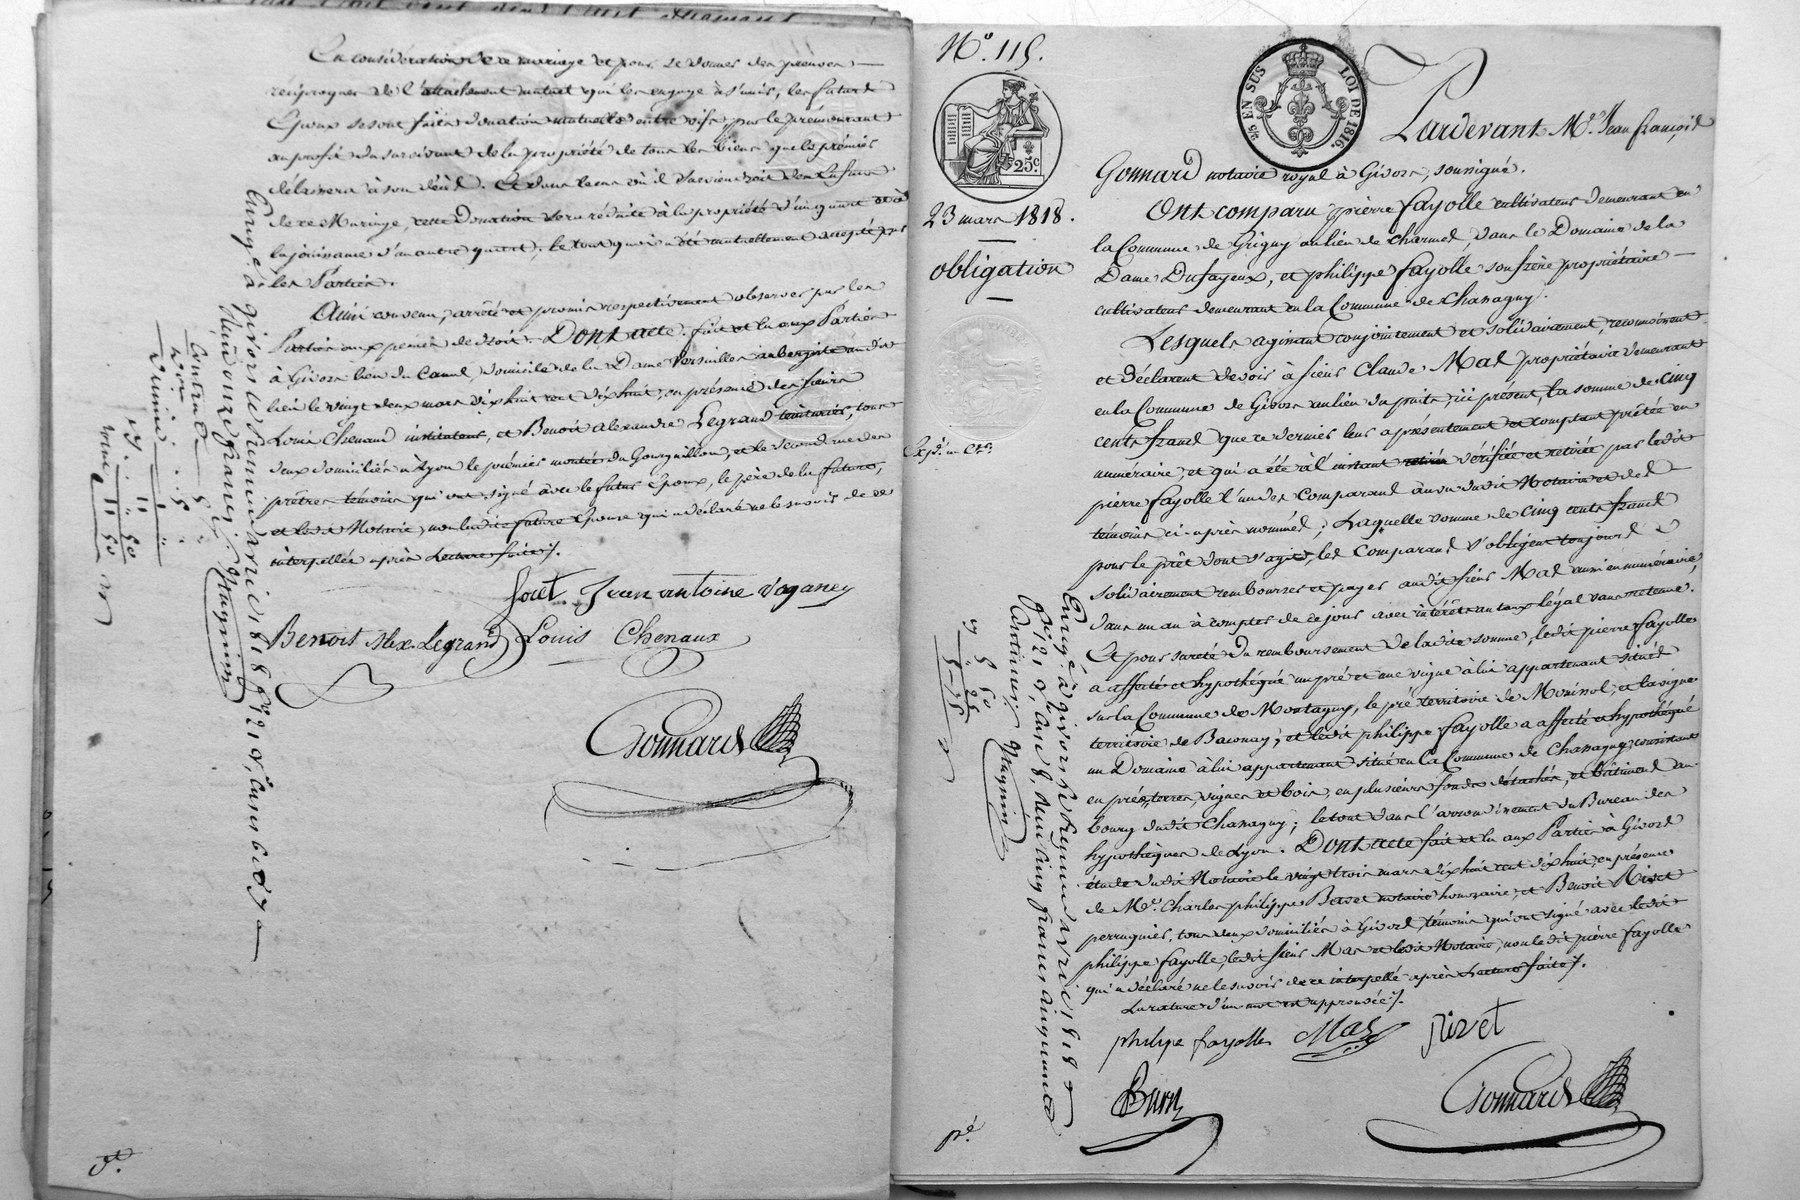 En considération de ce mariage et pour se donner des preuves
réciproques de l'attachement mutuel qui les engage à s'unir, les futurs
Epoux se sont faits donation mutuelle entre vifs par le prémourant
au profit du survivant de la propriété de tous les biens que le prémier
délaissera à son décéd. Et dans le cas où il surviendroit des Enfans
de ce Mariage, cette Donation sera réduite à la propriété d'un quart et à
la jouissance d'un autre quart; le tout quoi a été mutuellement accepté par
les Parties.
Ainsi convenu, arrêté et promis respectivement observer par les
Parties aux peines de droit. Dont acte. fait et lu aux Parties
à Givors lieu du Canal, domicile de la Dame Versailles aubergiste audit
lieu le vingt deux mars dix huit cent dix huit, en présence des sieurs
Louis Chenaud instituteur, et Benoit Alexandre Legrand teinturier, tous
deux domiciliés à Lyon le prémier montée du Gourguillon, et le second rue des
prêtres témoins qui ont signé avec le futur Epoux, le père de la future,
et ledit Notaire, non ladite future Epouse qui a déclaré ne le savoir de ce
interpellée après Lecture faite /.
Jean antoine Vaganey
Benoit Alex. Legrand Louis Chenaux
Gonnard
Enregé à givors le premier avril 1818 fo 121 Vo
Contrat 5
Dixième
N.o 115.
5/c EN SUS LOI DE 1816.
25c.
23 mars 1818.
obligation
Pardevant Me. Jean françois
Gonnard notaire royal à Givors, soussigné.
Ont comparu pierre fayolle cultivateur demeurant en
la Commune de Grigny au lieu de charmes, dans le Domaine de la
Dame Dufayeux, et philippe fayolle son frère propriétaire
cultivateur demeurant en la Commune de Chanagny.
Lesquels agissant conjointement et solidairement, reconnoissent
et déclarent devoir à sieur Claude Mas propriétaire demeurant
en la Commune de Givors au lieu du puits, ici présent, la somme de cinq
cents francs que ce dernier leur a présentement et comptant prêtée en
numéraire, et qui a été à l'instant vérifiée et retirée par ledit
pierre fayolle l'un des Comparans à vu dudit Notaire et des
témoins ci-après nommés; Laquelle somme de cinq cents francs
pour le prêt dont s'agit, les Comparans s'obligent toujours
solidairement rembourser et payer audit sieur Mas aussi en numéraire,
dans un an à compter de ce jour avec intérêts au taux légal sans retenue.
Et pour sureté du remboursement de ladite somme, ledit pierre fayolle
a affecté et hypothéqué un pré et une vigne à lui appartenant situés
sur la Commune de Montagny, le pré territoire de Morinol, et la vigne
territoire de Baconay; et ledit philippe fayolle a affecté et hypothéqué
un Domaine à lui appartenant situé en la Commune de Chanagny consistant
en prés, terres, vignes et bois, en plusieurs fonds détachés, et bâtimens au
bourg dudit Chanagny; le tout dans l'arrondissement du Bureau des
hypothèques de Lyon. Dont acte fait et lu aux Parties à Givors
étude dudit Notaire le vingt trois mars dix huit cent dix huit, en présence
de Me. Charles philippe notaire honoraire, et Benoit Rivet
perruquier, tous deux domiciliés à Givors, témoins qui ont signé avec ledit
philippe fayolle, ledit sieur Mas et ledit Notaire, non ledit pierre fayolle
qui a déclaré ne le savoir de ce interpellé après Lecture faite /.
La rature d'un mot est approuvée /.
philipe fayolle Mas rivet
Gonnard
Enregé à givors le premier avril 1818
fo 121 Vo, case 8, reçu cinq francs cinquante
Centimes